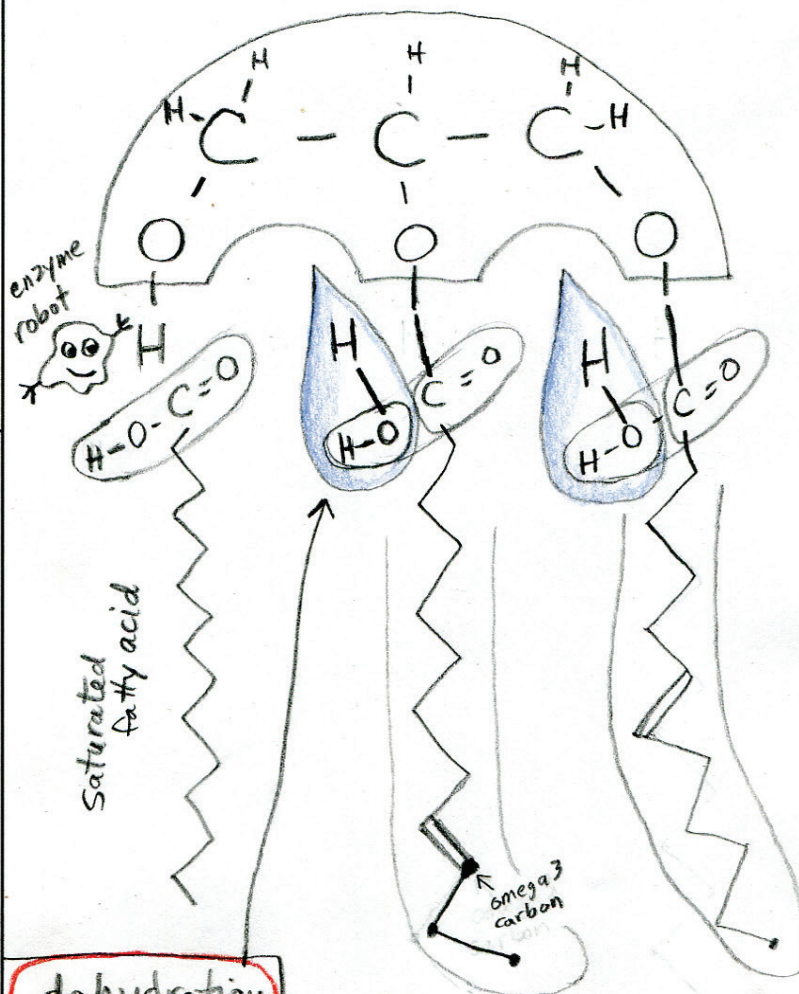 H H H
H C — C — C H
O O O
enzyme
robot
H
H-O-C=O
H
H-O
C=O
H
H-O-C=O
Saturated
fatty acid
omega 3
carbon
dehydration